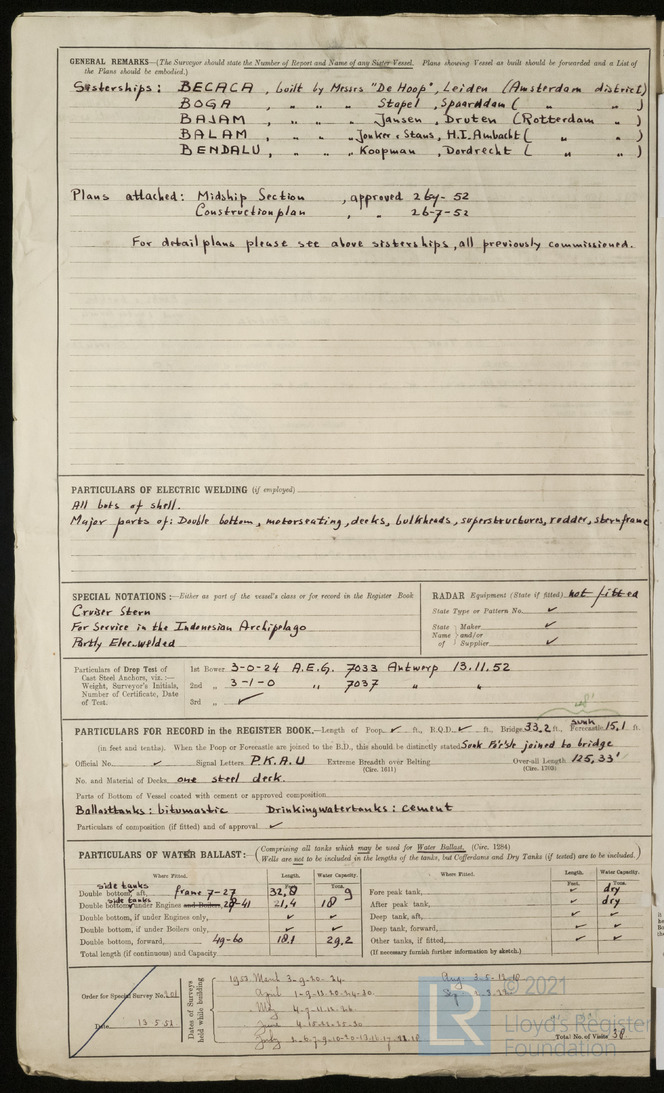 GENERAL REMARKS—(The Surveyor should state the Number of Report and Name of any Sister Vessel. Plans showing Vessel as built should be forwarded and a List of
the Plans should be embodied.)
Sisterships: BECACA, built by Messrs "De Hoop", Leiden (Amsterdam district)
BOGA, " " " Stapel, Spaarndam ( " " )
BAJAM, " " " Jansen, Druten (Rotterdam " )
BALAM, " " " Jonker & Stans, H.I. Ambacht ( " " )
BENDALU, " " " Koopman, Dordrecht ( " " )
Plans attached: Midship Section, approved 26-7-52
Constructionplan, " 26-7-52
For detailplans please see above sisterships, all previously commissioned.
PARTICULARS OF ELECTRIC WELDING (if employed)
All buts of shell.
Major parts of: Double bottom, motorseating, decks, bulkheads, superstructures, rudder, sternframe
SPECIAL NOTATIONS:—Either as part of the vessel's class or for record in the Register Book
Cruiser Stern
For Service in the Indonesian Archipelago
Partly Elec. welded
RADAR Equipment (State if fitted) not fitted
State Type or Pattern No. ✓
State Name of } Maker and/or Supplier ✓ ✓
Particulars of Drop Test of Cast Steel Anchors, viz.:— Weight, Surveyor's Initials, Number of Certificate, Date of Test.
1st Bower 3-0-24 A.E.G. 7033 Antwerp 13.11.52
2nd " 3-1-0 " 7037 " "
3rd " ✓
PARTICULARS FOR RECORD in the REGISTER BOOK.—Length of Poop ✓ ft., R.Q.D. ✓ ft., Bridge 33.2 ft., sunk Forecastle 15.1 ft.
(in feet and tenths). When the Poop or Forecastle are joined to the B.D., this should be distinctly stated Sunk Fo'c'sle joined to bridge
Official No. ✓ Signal Letters P.K.A.U Extreme Breadth over Belting (Circ. 1611) Over-all Length (Circ. 1703) 125,33'
No. and Material of Decks, one steel deck.
Parts of Bottom of Vessel coated with cement or approved composition
Ballasttanks: bitumastic Drinkingwatertanks: cement
Particulars of composition (if fitted) and of approval ✓
PARTICULARS OF WATER BALLAST:—(Comprising all tanks which may be used for Water Ballast. (Circ. 1284)
Wells are not to be included in the lengths of the tanks, but Cofferdams and Dry Tanks (if tested) are to be included.)
Where Fitted. Length. Water Capacity. Where Fitted. Length. Water Capacity.
Feet. Tons. Feet. Tons.
side tanks
Double bottom, aft, frame 7-27 32,8 9 Fore peak tank, ✓ dry
side tanks
Double bottom, under Engines and Boilers, 29-41 21,4 18 After peak tank, ✓ dry
Double bottom, if under Engines only, ✓ ✓ Deep tank, aft, ✓ ✓
Double bottom, if under Boilers only, ✓ ✓ Deep tank, forward, ✓ ✓
Double bottom, forward, 49-60 18.1 29,2 Other tanks, if fitted, ✓ ✓
Total length (if continuous) and Capacity (If necessary furnish further information by sketch.)
Order for Special Survey No. 201
Date 13.5.52
Dates of Surveys held while building
1953 March 3-9-20-24
April 1-9-13-20-24-30
May 4-7-11-12-26
June
July
Aug.
Sep.
Total No. of Visits 38
LR © 2021
Lloyd's Register
Foundation